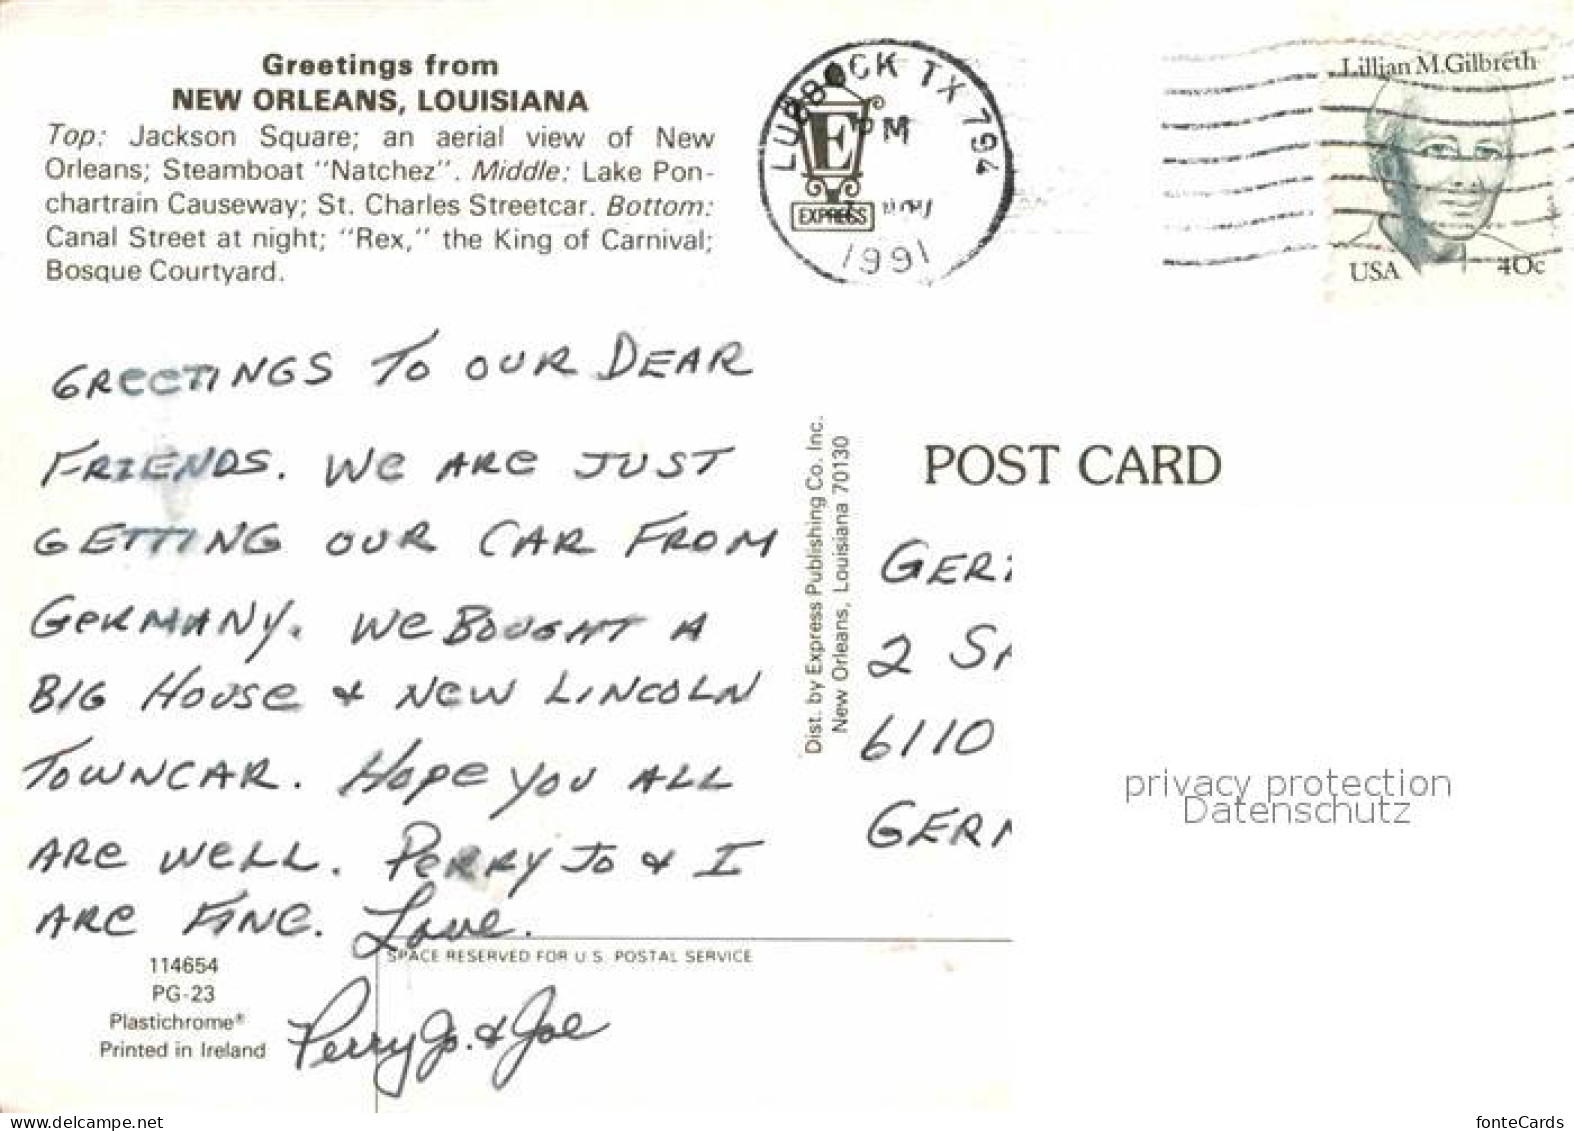 Greetings from
NEW ORLEANS, LOUISIANA
Top: Jackson Square; an aerial view of New
Orleans; Steamboat "Natchez". Middle: Lake Pon-
chartrain Causeway; St. Charles Streetcar. Bottom:
Canal Street at night; "Rex," the King of Carnival;
Bosque Courtyard.
LUBBOCK TX 794
PM
1991
E
EXPRESS
Lillian M. Gilbreth
USA 40c
GREETINGS TO OUR DEAR
FRIENDS. WE ARE JUST
GETTING OUR CAR FROM
GERMANY. WE BOUGHT A
BIG HOUSE & NEW LINCOLN
TOWNCAR. HOPE YOU ALL
ARE WELL. PERRY JO & I
ARE FINE. Love.
Perry Jo. & Joe
Dist. by Express Publishing Co. Inc.
New Orleans, Louisiana 70130
POST CARD
GER
2 S
6110
GER
privacy protection
Datenschutz
SPACE RESERVED FOR U.S. POSTAL SERVICE
114654
PG-23
Plastichrome®
Printed in Ireland
www.delcampe.net
fonteCards